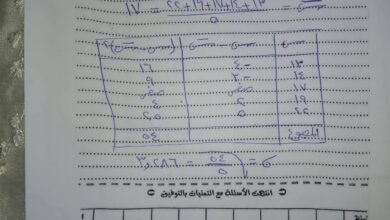 س = ١٣+١٤+١٧+١٩+٢٢ / ٥ = ١٧
س س - س (س - س)٢
١٣ -٤ ١٦
١٤ -٣ ٩
١٧ صفر صفر
١٩ ٢ ٤
٢٢ ٥ ٢٥
المجموع ٥٤
σ = √٥٤ / ٥ = ٣,٢٨٦
انتهت الأسئلة مع التمنيات بالتوفيق